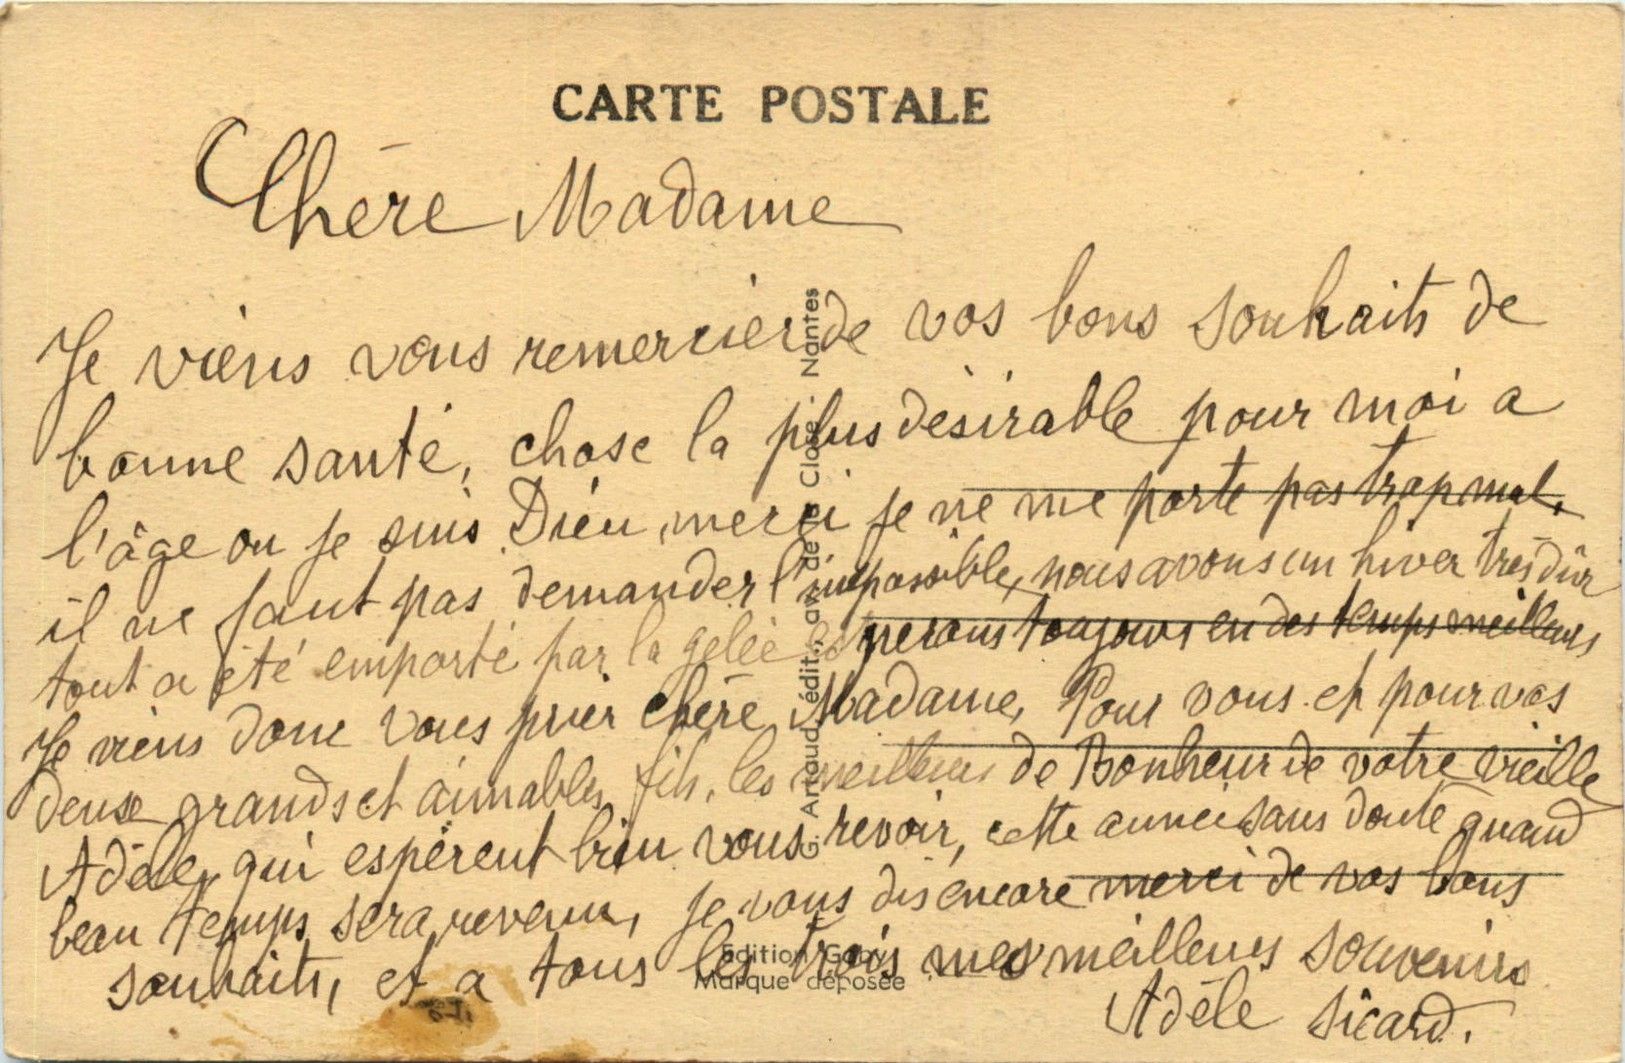 CARTE POSTALE
Chère Madame
Je viens vous remercier de vos bons souhaits de
bonne santé, chose la plus désirable pour moi a
l'âge ou je suis Dieu merci je ne me porte pas trop mal,
il ne faut pas demander l'impossible, nous avons un hiver très dûr
tout a été emporté par la gelée esperons toujours en des temps meilleurs
Je viens donc vous prier chère Madame, Pour vous et pour vos
deux grands et aimables fils, les meilleurs de Bonheur de votre vieille
Adèle, qui espèrent bien vous revoir, cette année sans doute quand
beau temps sera revenu, je vous dis encore merci de vos bons
souhaits, et a tous les trois mes meilleurs souvenirs
Adèle Sicard.
G. Artaud, édit., av. de la Close Nantes
Edition Gaby
Marque déposée